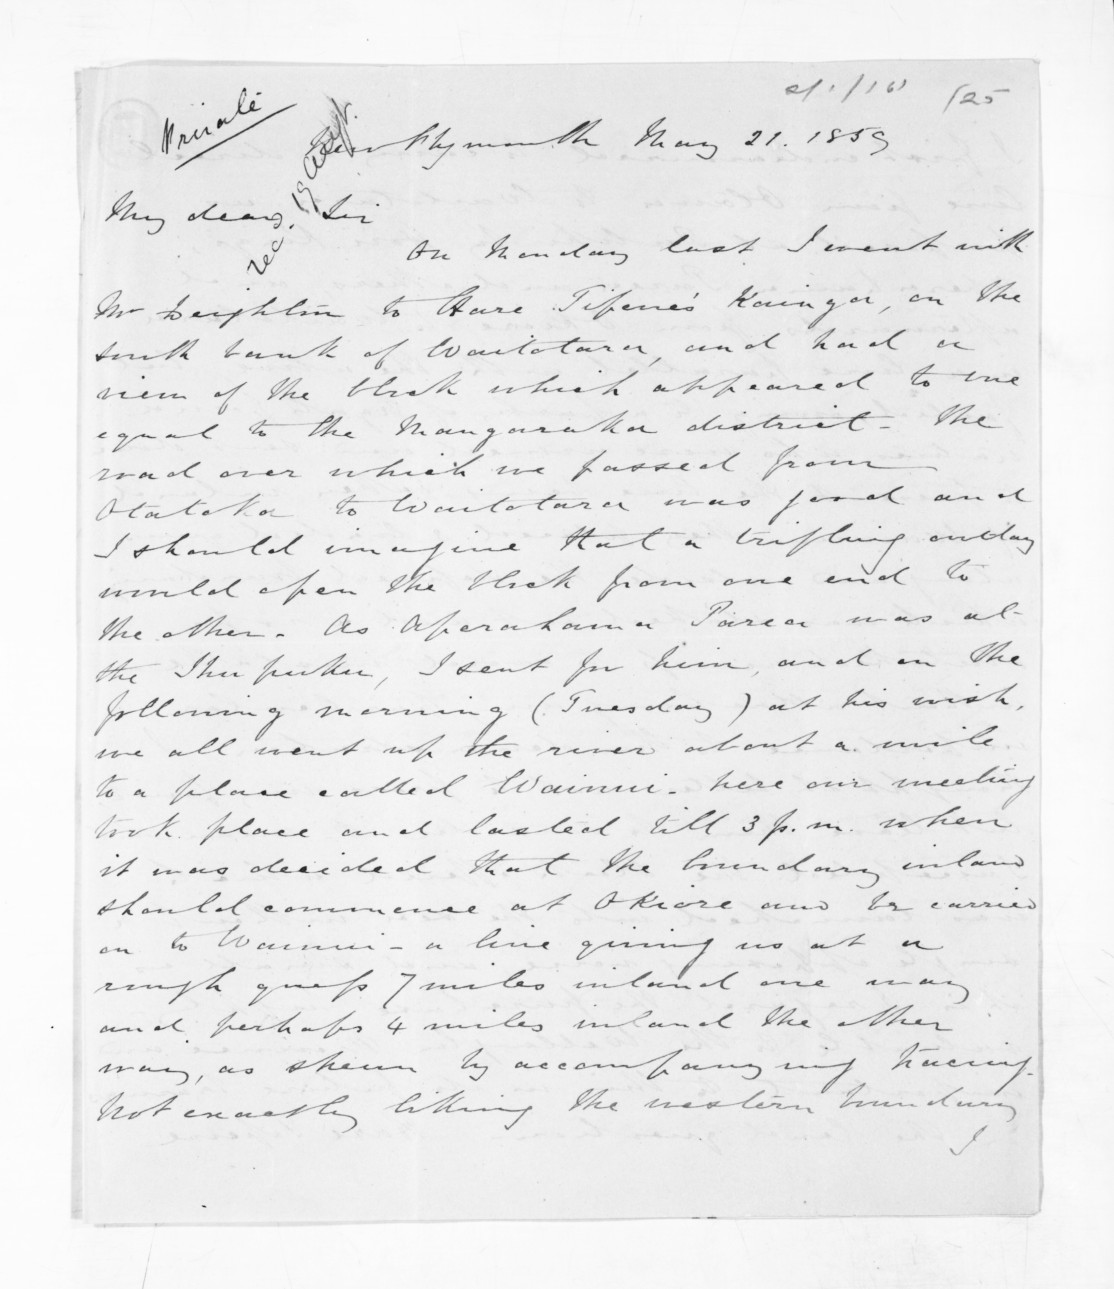 Private
125
New Plymouth May 21. 1859
My dear Sir
On Monday last I went with
Mr Deighton to Hare Tipene's Kainga, on the
south bank of Waitotara, and had a
view of the block which appeared to me
equal to the Mangaraka district - The
road over which we passed from
Otataka to Waitotara was good and
I should imagine that a trifling outlay
would open the block from one end to
the other - As Aperahama Parea was at
the Ihupuku, I sent for him, and on the
following morning (Tuesday) at his wish,
we all went up the river about a mile
to a place called Wainui - here our meeting
took place and lasted till 3 p.m. when
it was decided that the boundary inland
should commence at Okiore and be carried
on to Wainui - a line giving us at a
rough guess 7 miles inland one way
and perhaps 4 miles inland the other
way, as shewn by accompanying tracing.
Not exactly liking the western boundary
I